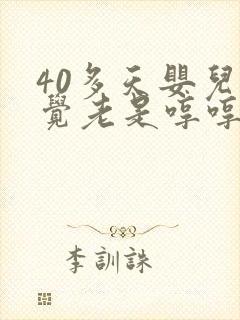 40多天嬰兒
覺老是哼哼
李訓誅